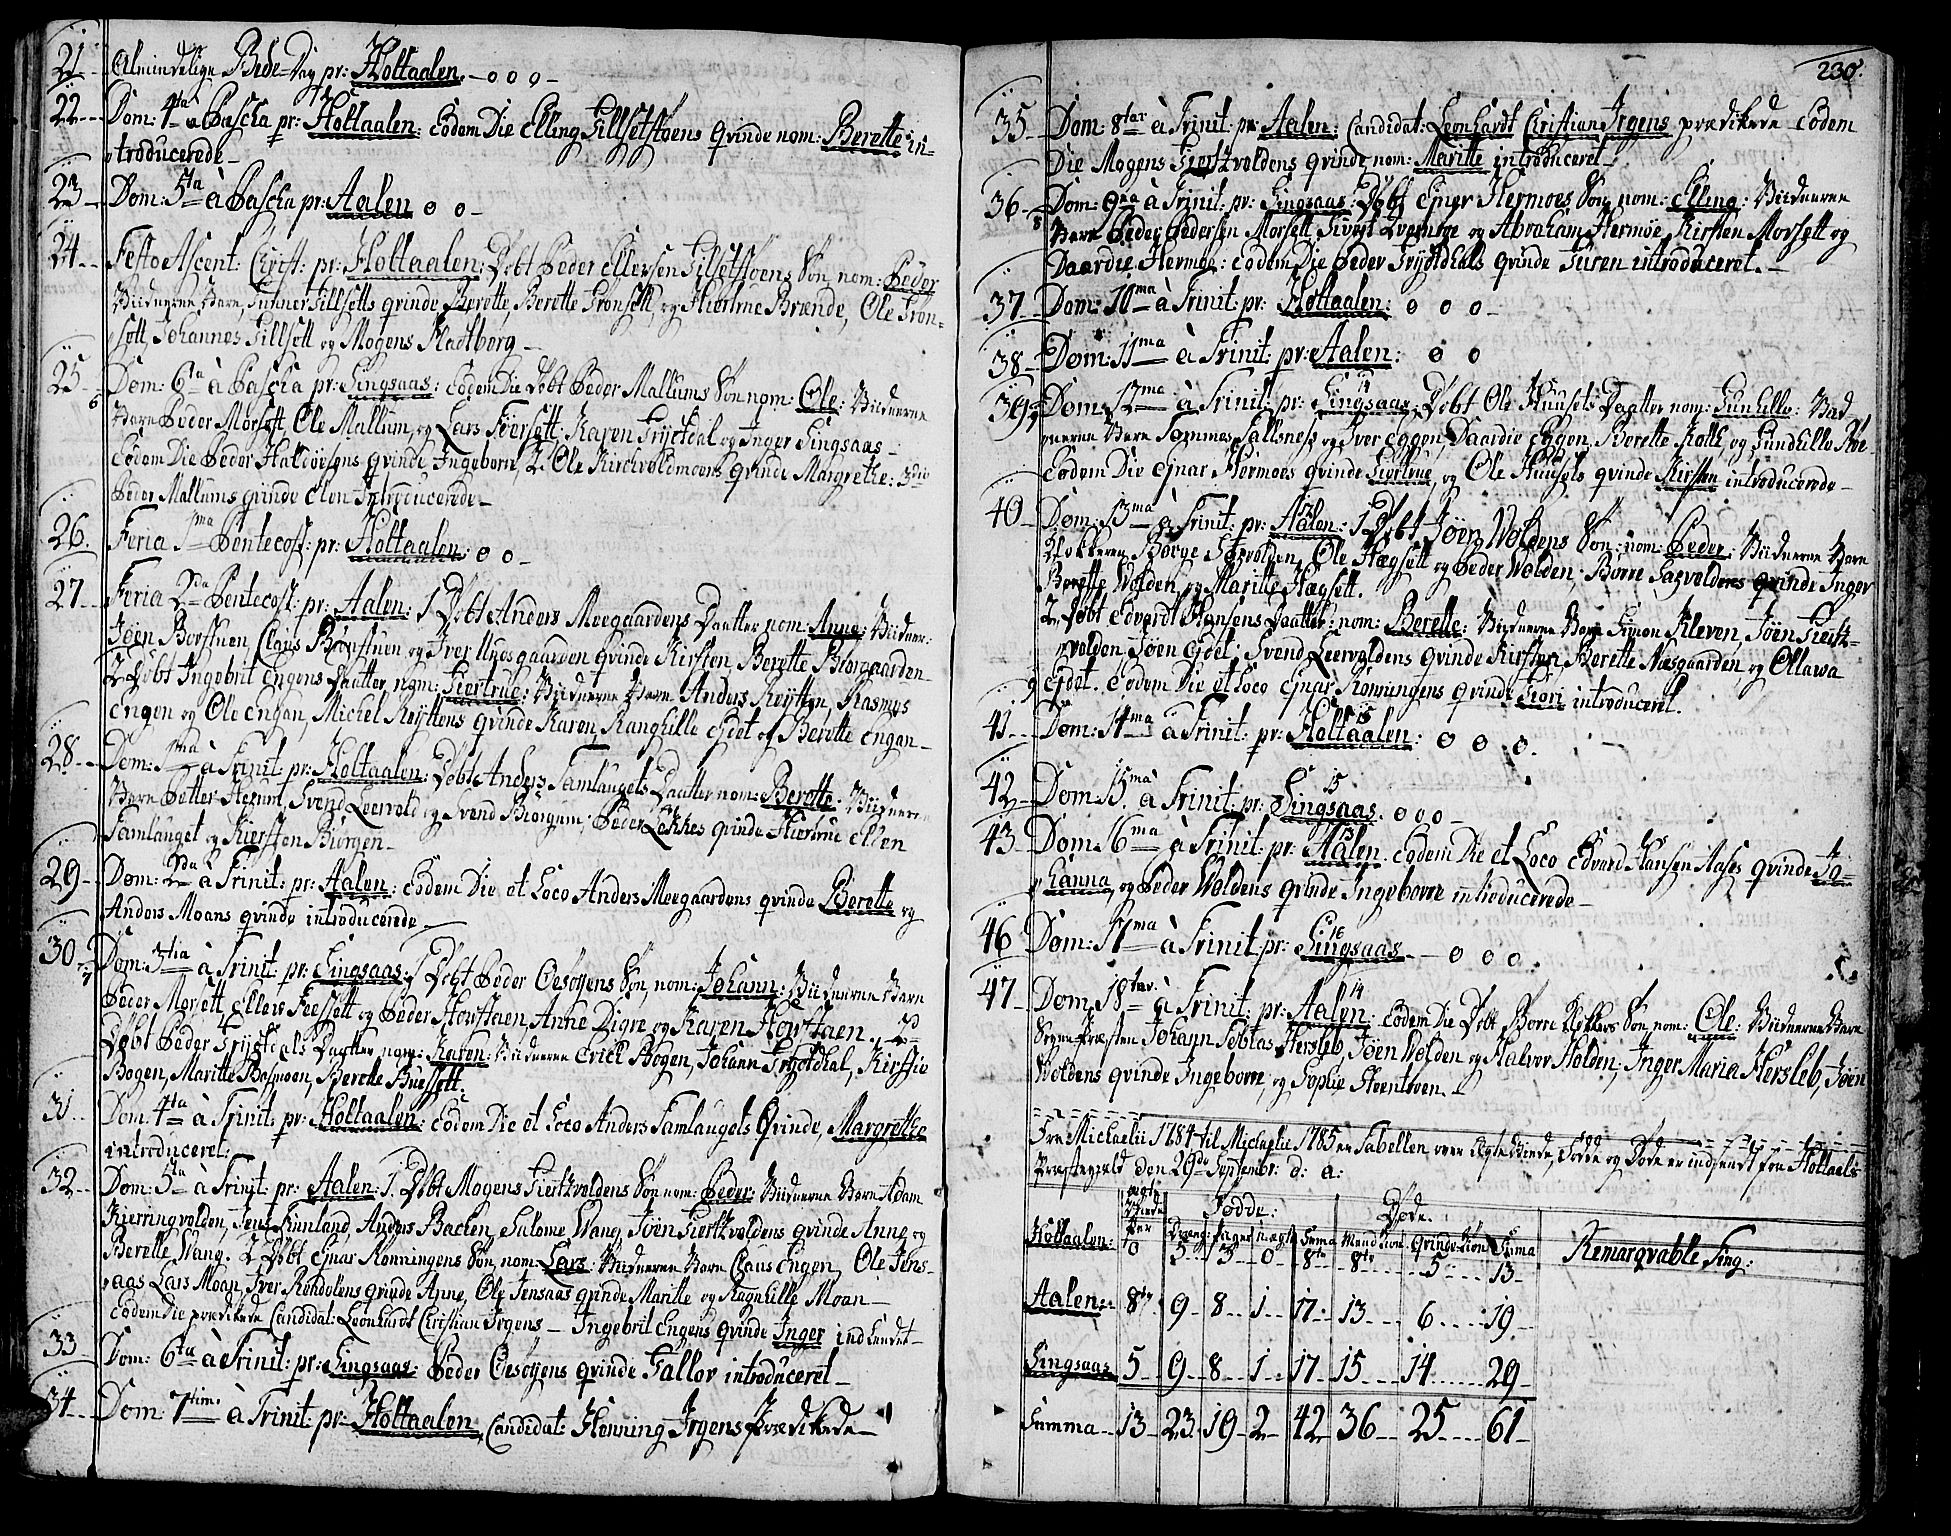 21. Almindelige Bede-Dag pr: Holtaalen. - o o o -
22. Dom: 4ta à Pascha pr: Holtaalen: Eodem Die Elling Gillsetstøens qvinde nom: Berette in-
troducerede -
23. Dom: 5ta à Pascha pr: Aalen o o -
24. Festo Ascent: Christi: pr: Holtaalen: Døbt Peder Ellersen Gilsetstøens Søn, nom: Peder
Viidnerne Vare, Gunner Gillsetts qvinde Berette, Berette Gronsett, og Hiertrue Brænde, Ole Gron-
sett, Johannes Gillsett og Mogens Sladtberg -
25. Dom: 6ta à Pascha pr: Singsaas: Eodem Die Døbt Peder Mallums Søn nom: Ole: Viidnerne
6 Vare Peder Morsett, Ole Mallum, og Lars Foersett: Karen Frystdal og Inger Singsaas -
Eodem Die Peder Haldorsens qvinde, Ingeborn, 2. Ole Kirchvoldmoens qvinde Margrethe: 3die
Peder Mallums qvinde Elen Introducerede -
26. Feria 1ma Pentecost: pr: Holtaalen: o o -
27. Feria 2da Pentecost: pr: Aalen: 1 Døbt Anders Moegaardens Daatter nom: Anne: Viidner:
Jøen Borstuen, Claus Børstuen og Iver Nyesgaarden qvinde Kirsten, Berette Biorgaarden
2 Døbt Ingebrit Engens Daatter, nom: Giertrue: Viidnerne Vare Anders Røytten, Rasmus
Engen og Ole Engan, Michel Røyttens qvinde Karen, Ranghille Eydet og Berette Engan -
28. Dom: 1ma à Trinit: pr: Holtaalen: Døbt Anders Tamlaugets Daatter nom: Berette: Viidnerne
Vare Petter Hegum, Svend Leervold og Svend Biorgum; Peder Løkkes qvinde Hiertrue Elden
Tamlauget og Kiersten Biørgen -
29. Dom: 2da à Trinit: pr: Aalen: Eodem Die et Loco Anders Moegaardens qvinde Berette og
Anders Moans qvinde introducerede -
30. Dom: 3tia à Trinit: pr: Singsaas: 1 Døbt Peder Oesøyens Søn, nom: Johann: Viidnerne Vare
7 Peder Morsett, Ellers Feesett og Peder Howstaen, Anne Digre og Karen Howstaen. 2d
Døbt Peder Frystdals Daatter, nom: Karen: Viidnerne Erich Bogen, Johann Frystdhal, Kirstie
Bogen, Maritte Basmoen, Berette Buessett.
31. Dom: 4ta à Trinit: pr: Holtaalen: Eodem Die et Loco Anders Tamlaugets Qvinde, Margrethe
introduceret:
32. Dom: 5ta à Trinit: pr: Aalen: 1. Døbt Mogens Giertzvoldens Søn nom: Peder: Viidnerne Vare Adam
Kierringvolden, Jens Lunland, Anders Backen, Salome Wang, Jøen Giertzvoldens qvinde Anne og
Berette Wang. 2 Døbt Ejnar Rønningens Søn, nom: Lars: Viidnerne Vare Claus Engen, Ole Jens-
aas Lars Moan, Iver Rohdolens qvinde Anne, Ole Jensaas qvinde Maritte og Ragnhille Moan -
Eodem Die prædikede Candidat: Leonhardt Christian Irgens - Ingebrit Engens Qvinde Inger indleedet -
33. Dom: 6ta à Trinit: pr: Singsaas: Peder Oesøyens qvinde Gallov introduceret -
34. Dom: 7tima à Trinit: pr: Holtaalen, Candidat: Henning Irgens Prædikede -
230.
35. Dom: 8tav à Trinit: pr: Aalen: Candidat: Leonhardt Christian Irgens prædikede Eodem
Die Mogens Giertzvoldens qvinde nom: Maritte introduceret -
36. Dom: 9na à Trinit: pr: Singsaas: Døbt Ejner Hermoes Søn nom: Elling: Viidnerne
8 Vare Peder Pedersen Morsett, Sivert Qvernmoe og Abraham Hermøe, Kirsten Morsett og
Daardie Hermøe: Eodem Die Peder Frystdhals qvinde Guren introduceret. -
37. Dom: 10ma à Trinit: pr: Holtaalen: o o o -
38. Dom: 11ma à Trinit: pr: Aalen: o o
39. Dom: 12ma à Trinit: pr: Singsaas: Døbt Ole Huusets Daatter nom: Gunhille: Viid-
nerne Vare Tommes Fallsness og Iver Eggen, Daardie Eggen, Berette Kolle, og Gundhille Roe
Eodem Die Ejnar Hermoes qvinde Giertrue, og Ole Huusets qvinde Kirsten introducerede -
40. Dom: 13ma à Trinit: pr: Aalen: 1 Døbt Jøen Woldens Søn: nom: Peder: Viidnerne Vare
Klokkeren Børge Sagvolden, Ole Hægsett og Peder Wolden; Borre Sagvoldens qvinde Inger
Berette Wolden, og Maritte Hægsett.
2. Døbt Edvardt Hansens Daatter: nom: Berette: Viidnerne Vare Simon Kleven, Jøen Giertz-
volden Jøen Ejdet: Svend Leervoldens qvinde Kirsten, Berette Næsgaarden og Ollawa
Ejdet. Eodem Die et Loco Ejnar Rønningens qvinde Giøri introduceret.
41. Dom: 14ma à Trinit: pr: Holtaalen: o o o.
42. Dom: 15ma à Trinit: pr: Singsaas. o o o -
43. Dom: 16ma à Trinit: pr: Aalen. Eodem Die et Loco Edvard Hansen Aases qvinde Jo-
hanna, og Peder Woldens qvinde Ingeborre introducerede -
46. Dom: 17ma à Trinit: pr: Singsaas - o o o.
47. Dom: 18tav: à Trinit: pr: Aalen: Eodem Die Døbt Borre Klokkers Søn, nom: Ole: Viidnerne Vare
Sogne Præsten Johann Tobias Hersleb, Jøen Wolden og Halvor Holden, Inger Maria Hersleb, Jøen
Woldens qvinde Ingeborre, og Sophie Steentoven. -
Fra Michaelii 1784 til Michaelii 1785 er Tabellen over Ægte Viede, Fødde og Døde er indsendt fra Holtaals
Præstegield den 29de Septembr: d: a:
ægte Viede Par Fødde: Døde.
Holtaalen: Drenge Piger uægte Suma Mend Kiøn: Qvinde Kiøn Suma Remarqvable Ting:
0 5 3 0 8te 8te 5 13
Aalen: 8te 9 8 1 17 13 6 19
Singsaas 5 9 8 1 17 15 14 29
Summa 13 23 19 2 42 36 25 61